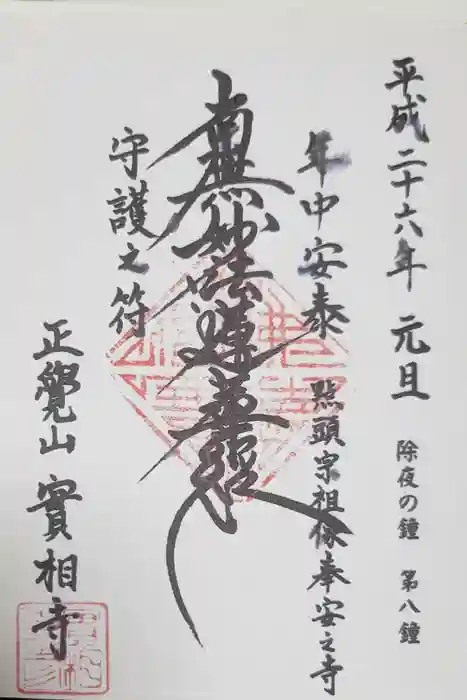 平成二十六年 元旦
除夜の鐘 第八鐘
年中安泰
点頭宗祖像奉安之寺
南無妙法蓮華経
守護之符
正覺山 實相寺